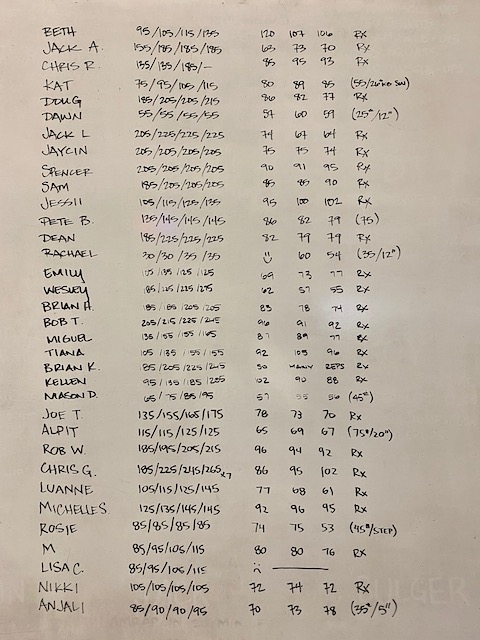 BETH 95/105/115/135 120 107 106 Rx
JACK A. 155/185/185/185 63 73 70 Rx
CHRIS R. 135/135/185/- 85 95 93 Rx
KAT 75/95/105/115 80 89 85 (55/26"KB SW)
DOUG 185/205/205/215 86 82 77 Rx
DAWN 55/55/55/55 57 60 59 (25#/12")
JACK L 205/225/225/225 74 67 64 Rx
JAYCIN 205/205/205/205 75 75 74 Rx
SPENCER 205/205/205/205 90 91 95 Rx
SAM 185/205/205/205 85 85 90 Rx
JESSII 105/115/125/135 95 100 102 Rx
PETE B. 135/145/145/145 86 82 79 (75)
DEAN 185/225/225/225 82 79 79 Rx
RACHAEL 30/30/35/35 60 54 (35/12")
EMILY 125/125 69 73 77 Rx
WESLEY 62 57 55 Rx
BRIAN H. 185/185/205/205 83 78 74 Rx
BOB T. 205/215/225/245 96 91 92 Rx
MIGUEL 135/155/155/165 89 77 Rx
TIANA 105/135/155/155 92 103 96 Rx
BRIAN K. 185/205/225/245 50 MANY REPS Rx
KELLEN 95/135/185/205 102 90 88 Rx
MASON D. 65/75/85/95 57 55 56 (45#)
JOE T. 135/155/165/175 78 73 70 Rx
ALPIT 115/115/125/125 65 69 67 (75#/20")
ROB W. 185/195/205/215 96 94 92 Rx
CHRIS G. 185/225/245/265x7 86 95 102 Rx
LUANNE 105/115/125/145 77 68 61 Rx
MICHELLE S. 125/135/145/145 92 96 95 Rx
ROSIE 85/85/85/85 74 75 53 (45#/STEP)
M 85/95/105/115 80 80 76 Rx
LISA C. 85/95/105/115
NIKKI 105/105/105/105 72 74 72 Rx
ANJALI 85/90/90/95 70 73 78 (35#/5")